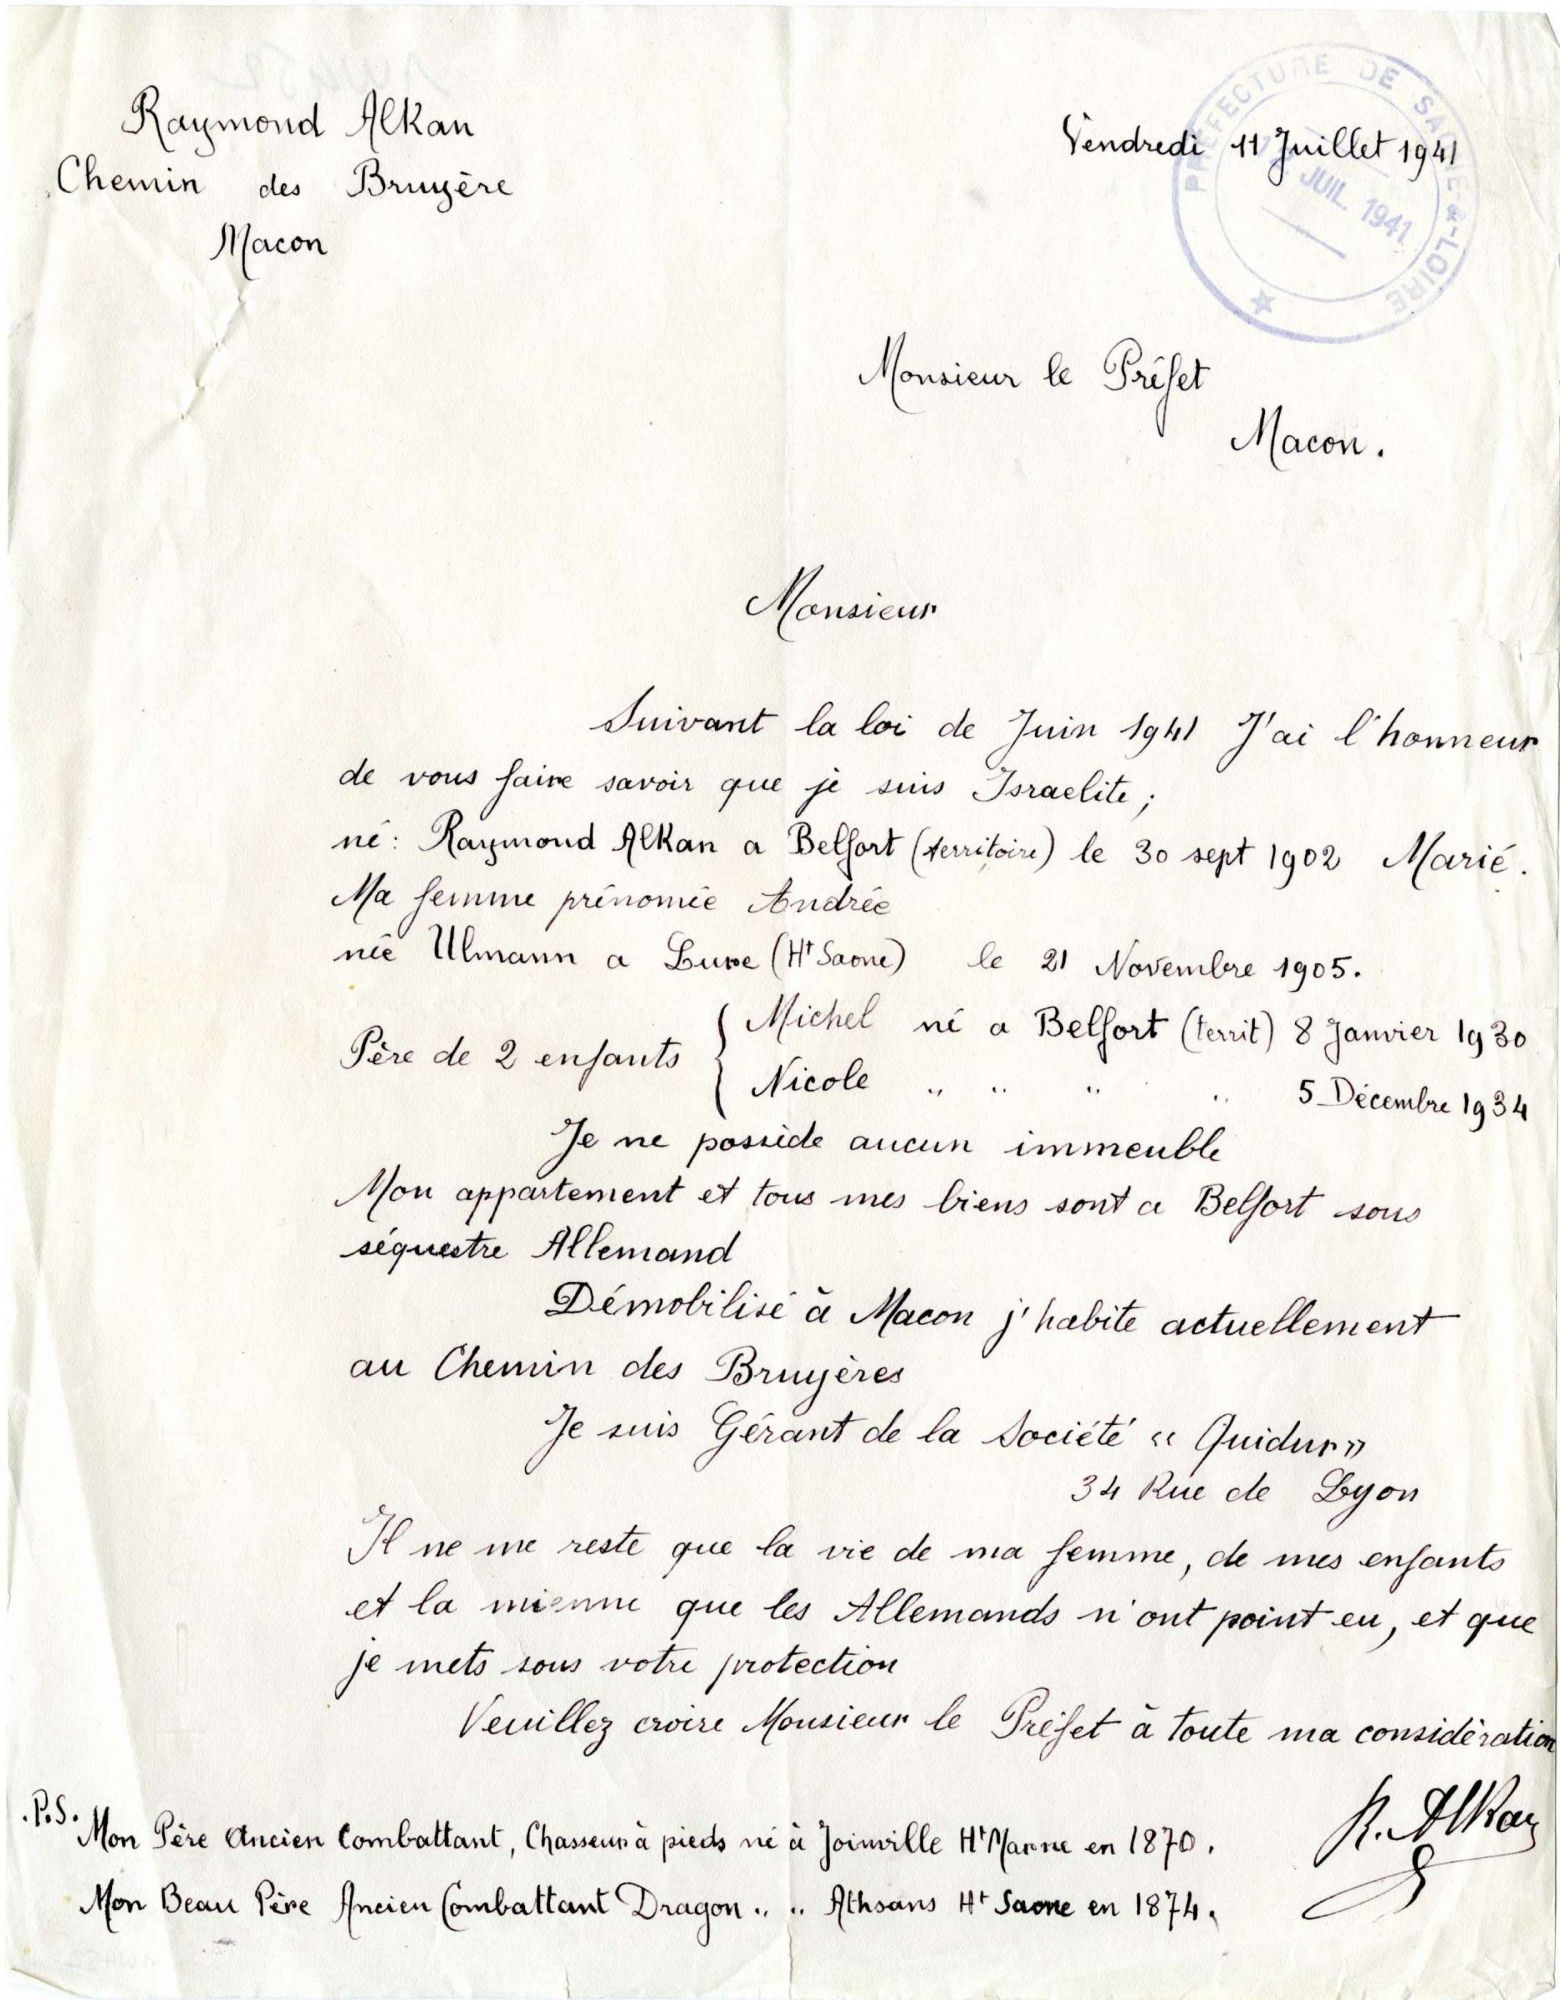 Raymond Alkan
Chemin des Bruyère
Macon
Vendredi 11 Juillet 1941
PRÉFECTURE DE SAÔNE-&-LOIRE
JUIL. 1941
Monsieur le Préfet
Macon.
Monsieur
Suivant la loi de Juin 1941 J'ai l'honneur
de vous faire savoir que je suis Israelite;
né: Raymond Alkan a Belfort (territoire) le 30 sept 1902 Marié.
Ma femme prénomée Andrée
née Ulmann a Lure (Ht Saone) le 21 Novembre 1905.
Père de 2 enfants { Michel né a Belfort (territ) 8 Janvier 1930
Nicole " " " " 5 Décembre 1934
Je ne possède aucun immeuble
Mon appartement et tous mes biens sont a Belfort sous
séquestre Allemand
Démobilisé à Macon j'habite actuellement
au Chemin des Bruyères
Je suis Gérant de la Société « Quidur »
34 Rue de Lyon
Il ne me reste que la vie de ma femme, de mes enfants
et la mienne que les Allemands n'ont point eu, et que
je mets sous votre protection
Veuillez croire Monsieur le Préfet à toute ma considération
R. Alkan
P.S. Mon Père Ancien Combattant, Chasseur à pieds né à Joinville Ht Marne en 1870.
Mon Beau Père Ancien Combattant Dragon " " Athsans Ht Saone en 1874.